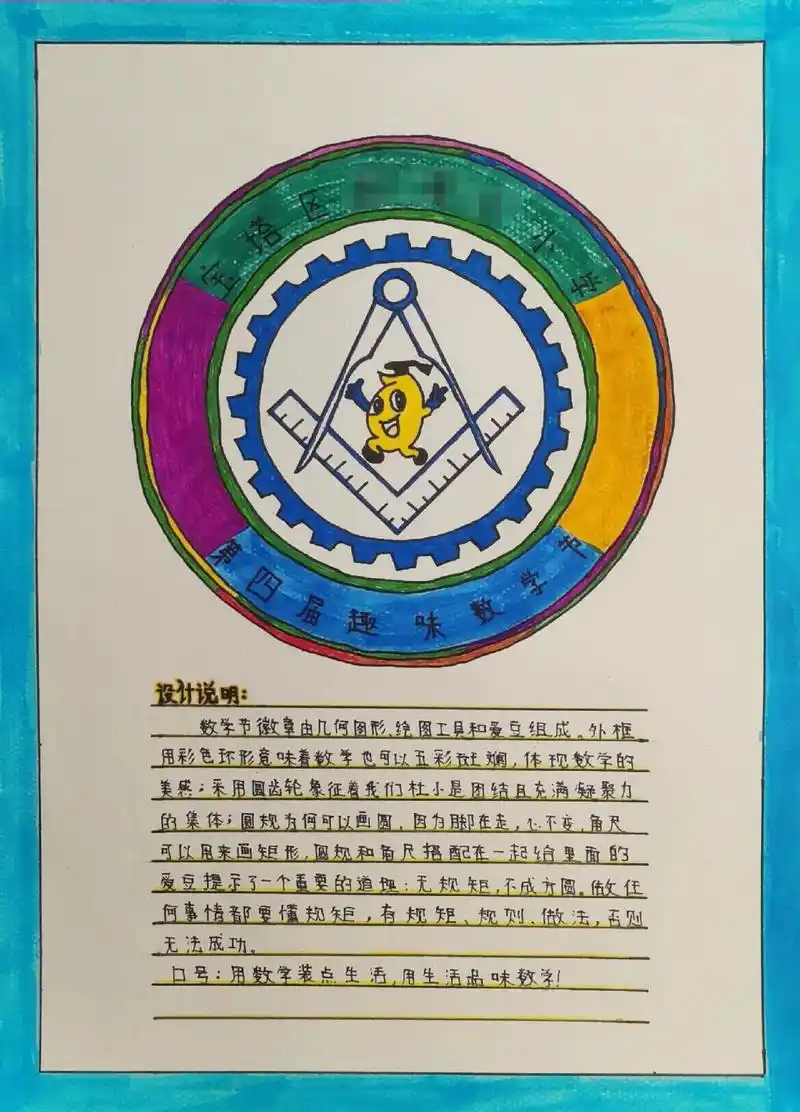 宝塔区 小学
第四届趣味数学节
设计说明:
数学节徽章由几何图形、绘图工具和爱豆组成。外框
用彩色环形意味着数学也可以五彩斑斓,体现数学的
美感;采用圆齿轮象征着我们杜小是团结且充满凝聚力
的集体;圆规为何可以画圆,因为脚在走,心不变,角尺
可以用来画矩形,圆规和角尺搭配在一起给里面的
爱豆提示了一个重要的道理:无规矩,不成方圆。做任
何事情都要懂规矩,有规矩、规则、做法,否则
无法成功。
口号:用数学装点生活,用生活品味数学!